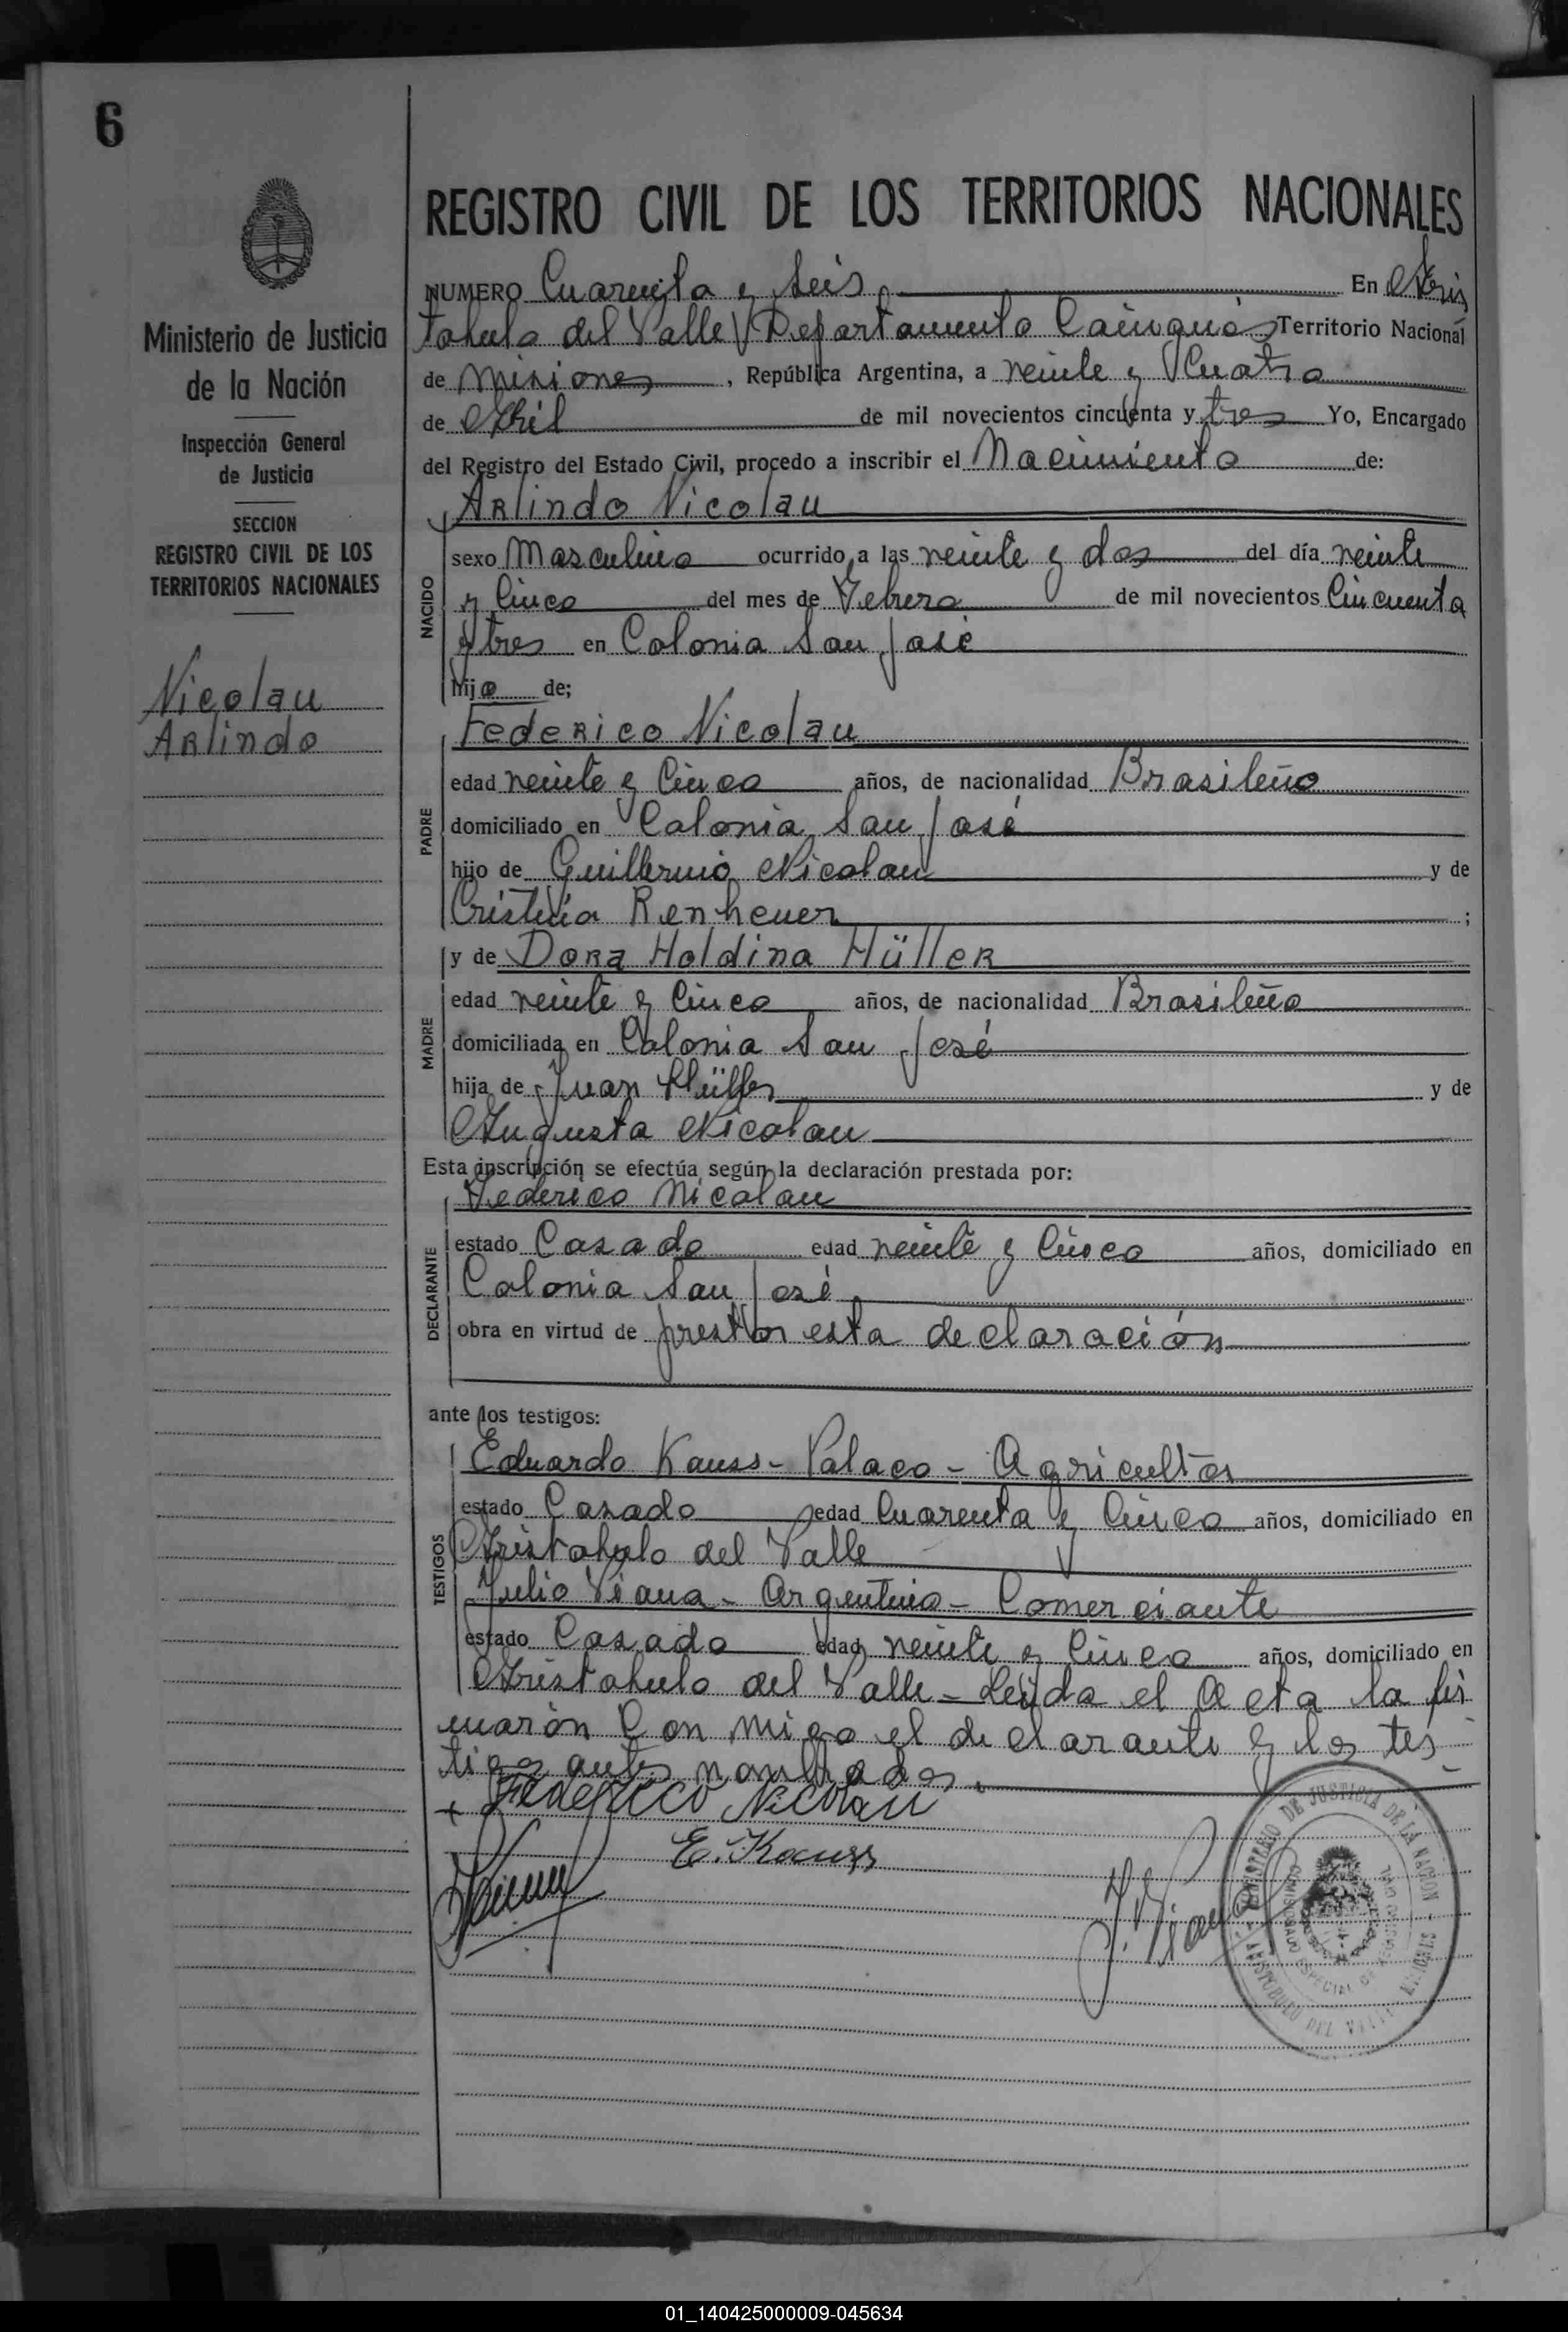 6
REGISTRO CIVIL DE LOS TERRITORIOS NACIONALES
Ministerio de Justicia
de la Nación
Inspección General
de Justicia
SECCION
REGISTRO CIVIL DE LOS
TERRITORIOS NACIONALES
Nicolau
Arlindo
NUMERO Cuarenta y Seis En Aris
tobulo del Valle Departamento Cainguás Territorio Nacional
de Misiones, República Argentina, a veinte y Cuatro
de Abril de mil novecientos cincuenta y tres Yo, Encargado
del Registro del Estado Civil, procedo a inscribir el Nacimiento de:
Arlindo Nicolau
NACIDO
sexo Masculino ocurrido a las veinte y dos del día veinte
y Cinco del mes de Febrero de mil novecientos Cincuenta
y tres en Colonia San José
hijo de;
Federico Nicolau
PADRE
edad veinte y Cinco años, de nacionalidad Brasileño
domiciliado en Colonia San José
hijo de Guillermo Nicolau y de
Cristina Renheuer;
y de Dora Holdina Müller
MADRE
edad veinte y Cinco años, de nacionalidad Brasileña
domiciliada en Colonia San José
hija de Juan Müller y de
Augusta Nicolau
Esta inscripción se efectúa según la declaración prestada por:
Federico Nicolau
DECLARANTE
estado Casado edad veinte y Cinco años, domiciliado en
Colonia San José
obra en virtud de prestar esta declaración
ante los testigos:
Eduardo Kauss - Polaco - Agricultor
TESTIGOS
estado Casado edad Cuarenta y Cinco años, domiciliado en
Aristobulo del Valle
Julio Viana - Argentino - Comerciante
estado Casado edad veinte y Cinco años, domiciliado en
Aristobulo del Valle - Leida el Acta la fir
marón Con migo el declarante y los tes
tigos antes nombrados.
+ Federico Nicolau
E. Kauss
J. Viana
MINISTERIO DE JUSTICIA DE LA NACION
ARISTOBULO DEL VALLE - MISIONES
01_140425000009-045634